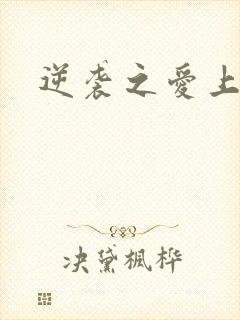 逆袭之爱上
决黛枫桦